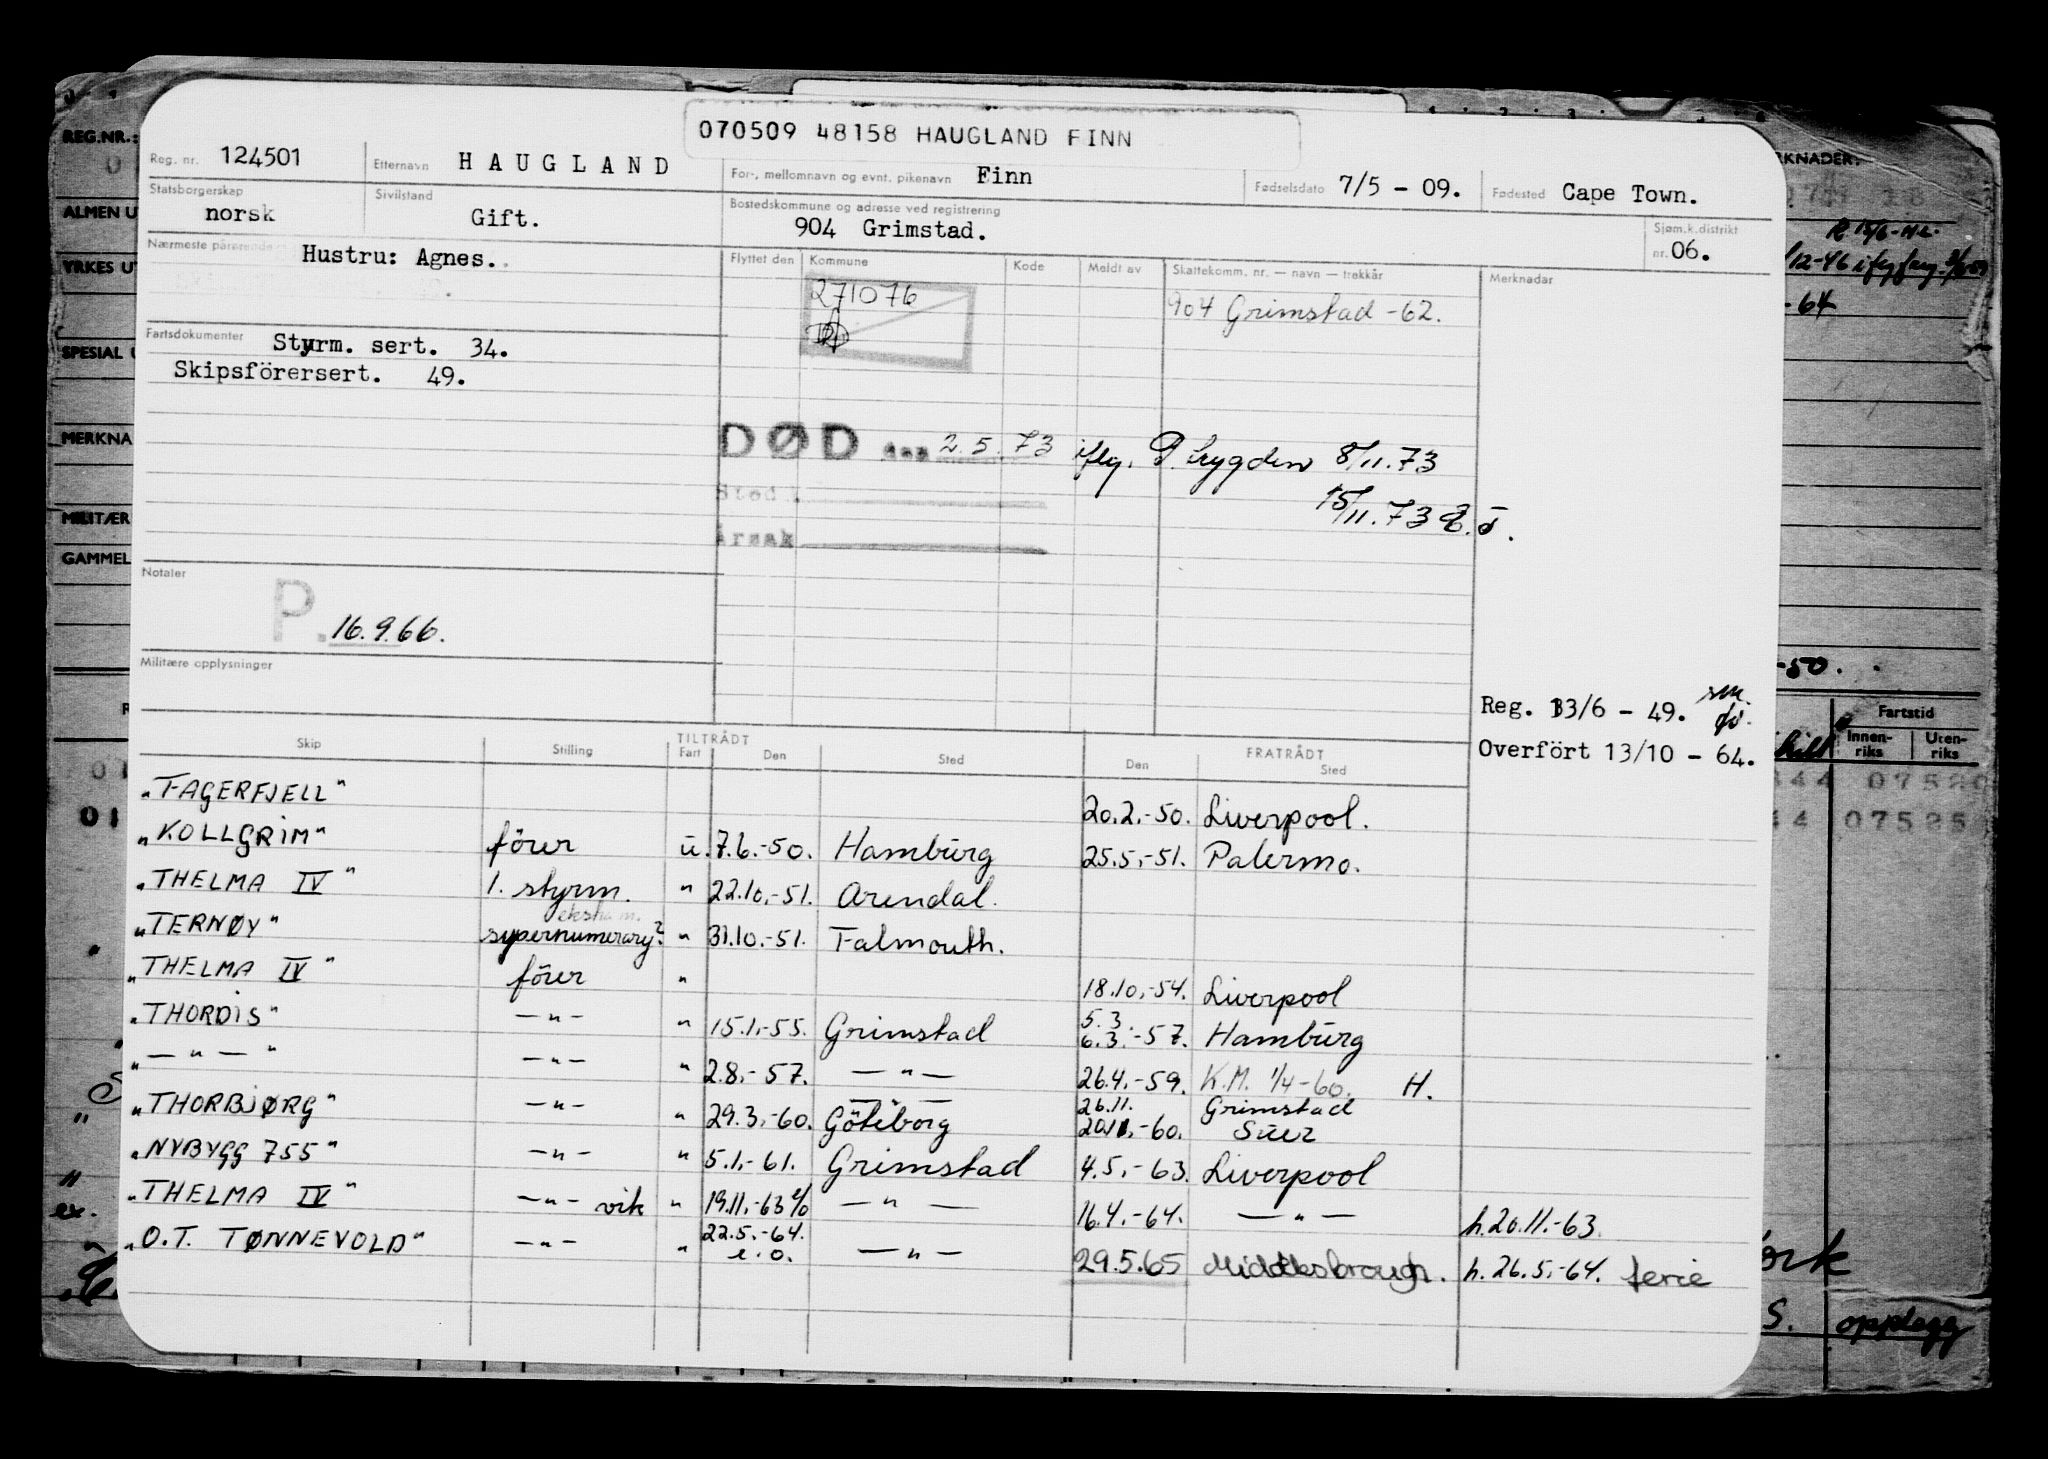 070509 48158 HAUGLAND FINN
Reg. nr. 124501 Etternavn HAUGLAND For-, mellomnavn og evnt. pikenavn Finn Fødselsdato 7/5 - 09. Fødested Cape Town.
Statsborgerskap norsk Sivilstand Gift. Bostedskommune og adresse ved registrering 904 Grimstad. Sjøm.k.distrikt nr. 06.
Nærmeste pårørende Hustru: Agnes.
Flyttet den Kommune Kode Meldt av Skattekomm. nr. — navn — trekkår Merknadar
271076
904 Grimstad -62.
Fartsdokumenter Styrm. sert. 34.
Skipsförersert. 49.
DØD den 2.5.73 iflg. P. trygden 8/11.73
Sted
15/11.73
Årsak
Notater
P. 16.9.66.
Militære opplysninger
Reg. 13/6 - 49.
Overfört 13/10 - 64.
Skip Stilling TILTRÅDT Fart Den Sted FRATRÅDT Den Sted
"FAGERFJELL" 20.2.-50. Liverpool.
"KOLLGRIM" förer u. 7.6.-50. Hamburg 25.5.-51. Palermo.
"THELMA IV" 1. styrm. " 22.10.-51. Arendal.
ekstra m.
"TERNØY" supernumerary? " 31.10.-51. Falmouth.
"THELMA IV" förer " 18.10.-54. Liverpool
"THORDIS" —"— " 15.1.-55. Grimstad 5.3. 6.3.-57. Hamburg
"—"—" —"— " 2.8.-57. —"— 26.4.-59. K.M. 1/4-60. H.
"THORBJØRG" —"— " 29.3.-60. Göteborg 26.11. Grimstad
20.11.-60. Suez
"NYBYGG 755" —"— " 5.1.-61. Grimstad 4.5.-63. Liverpool
"THELMA IV" —"— vik " 19.11.-63 —"— 16.4.-64. —"— h.20.11.-63.
"O.T. TØNNEVOLD" —"— " 22.5.-64. e.o. —"— 29.5.65 Middlesbrough. h.26.5.-64. ferie
REG.NR.:
ALMEN U
YRKES UT
SPESIAL U
MERKNA
MILITÆR
GAMMEL
RKNADER:
R 15/6-
12-46
-64
-50.
Fartstid
Innen-riks Uten-riks
44 07525
01
ex.
ork
S. opplegg